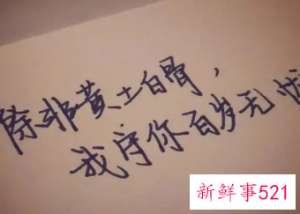 除非黄土白骨,
我守你百岁无忧
新鲜事521